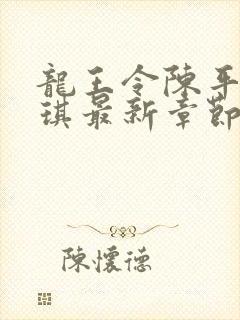 龍王令陳平
琪最新章節
陳懷德